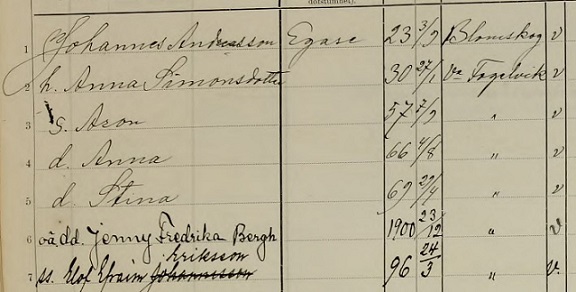 1 Johannes Andersson Egare 23 3/9 Blomskog v
2 h. Anna Simonsdotter 30 27/1 Va Fogelvik v
3 s. Aron 57 7/9 " v
4 d. Anna 66 4/8 " v
5 d. Stina 69 29/4 " v
6 oä dd. Jenny Fredrika Bergh 1900 23/12 " v
Eriksson
7 ss. Elof Efraim Johannisson 96 24/3 " v.